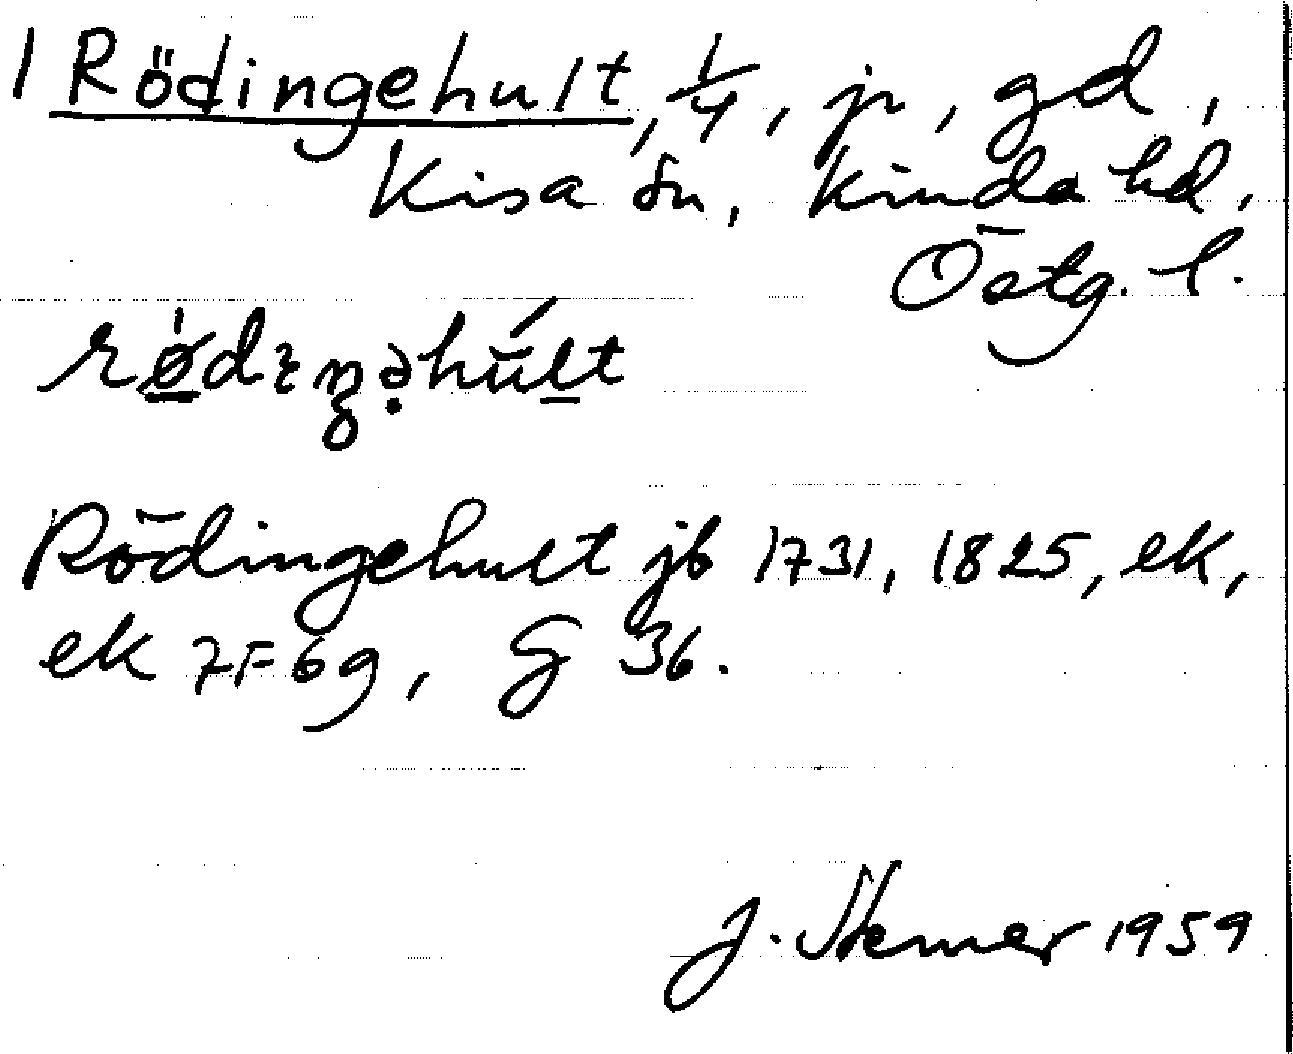 1 Rödingehult, 1/4, jr, gd,
Kisa sn, Kinda hd,
Östg. l.
rødıŋəhúlt
Rödingehult jb 1731, 1825, ek,
ek 7F6g, G 36.
J. 1959